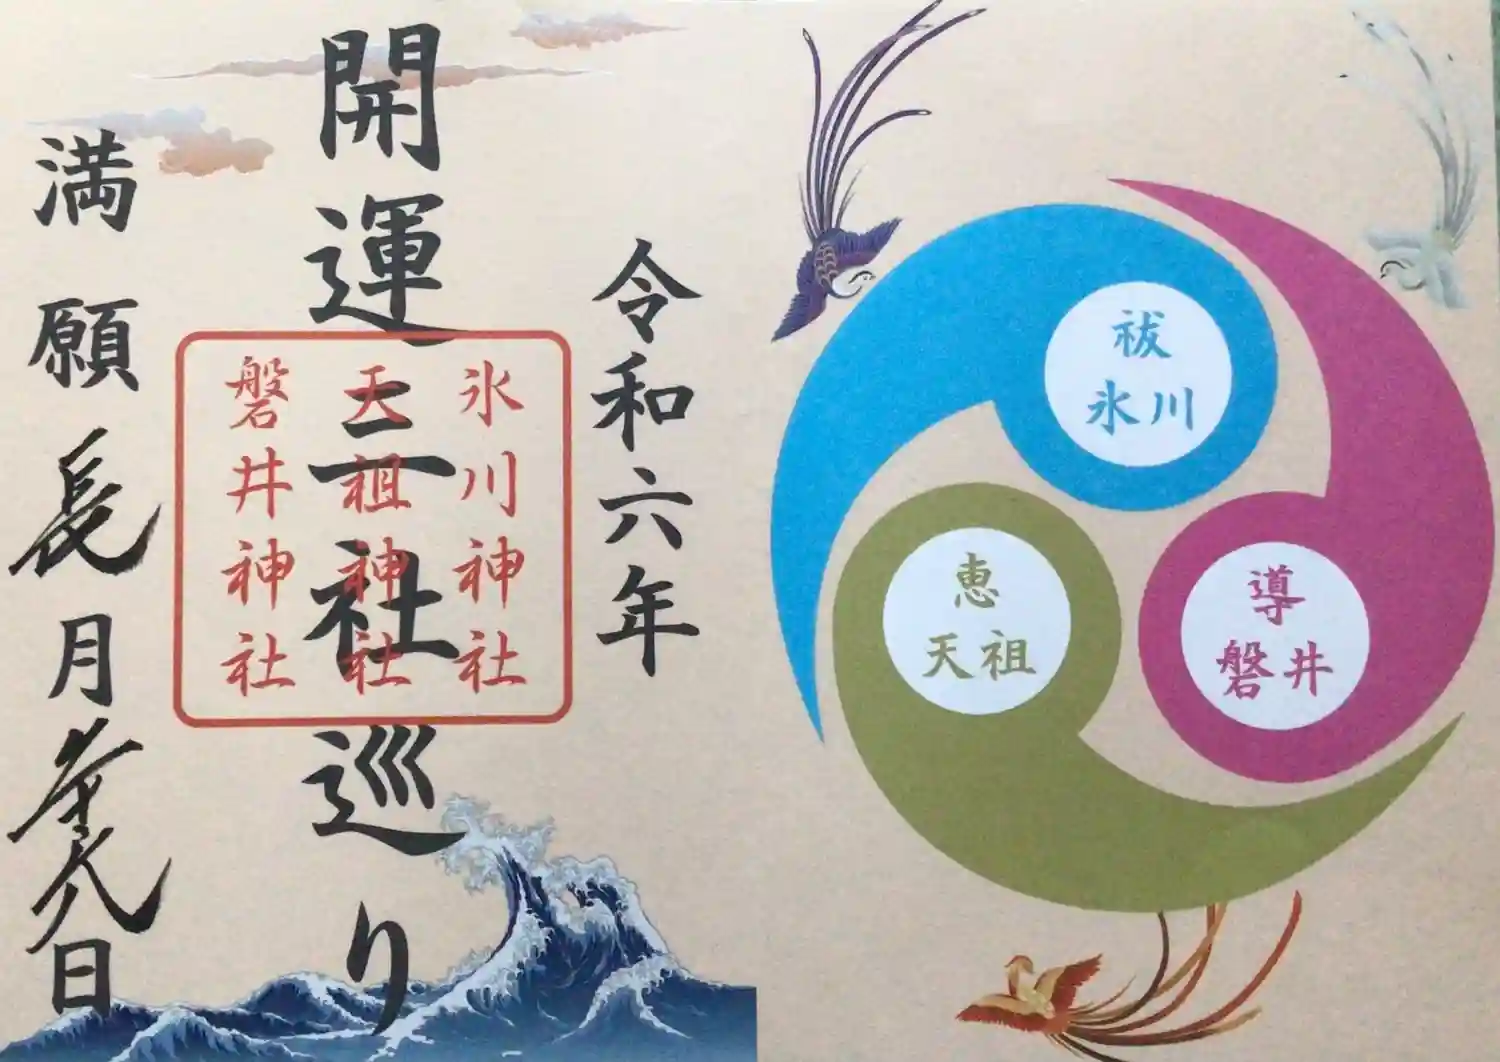 祓
氷川
導
磐井
恵
天祖
令和六年
開運三社巡り
氷川神社
天祖神社
磐井神社
満願長月日